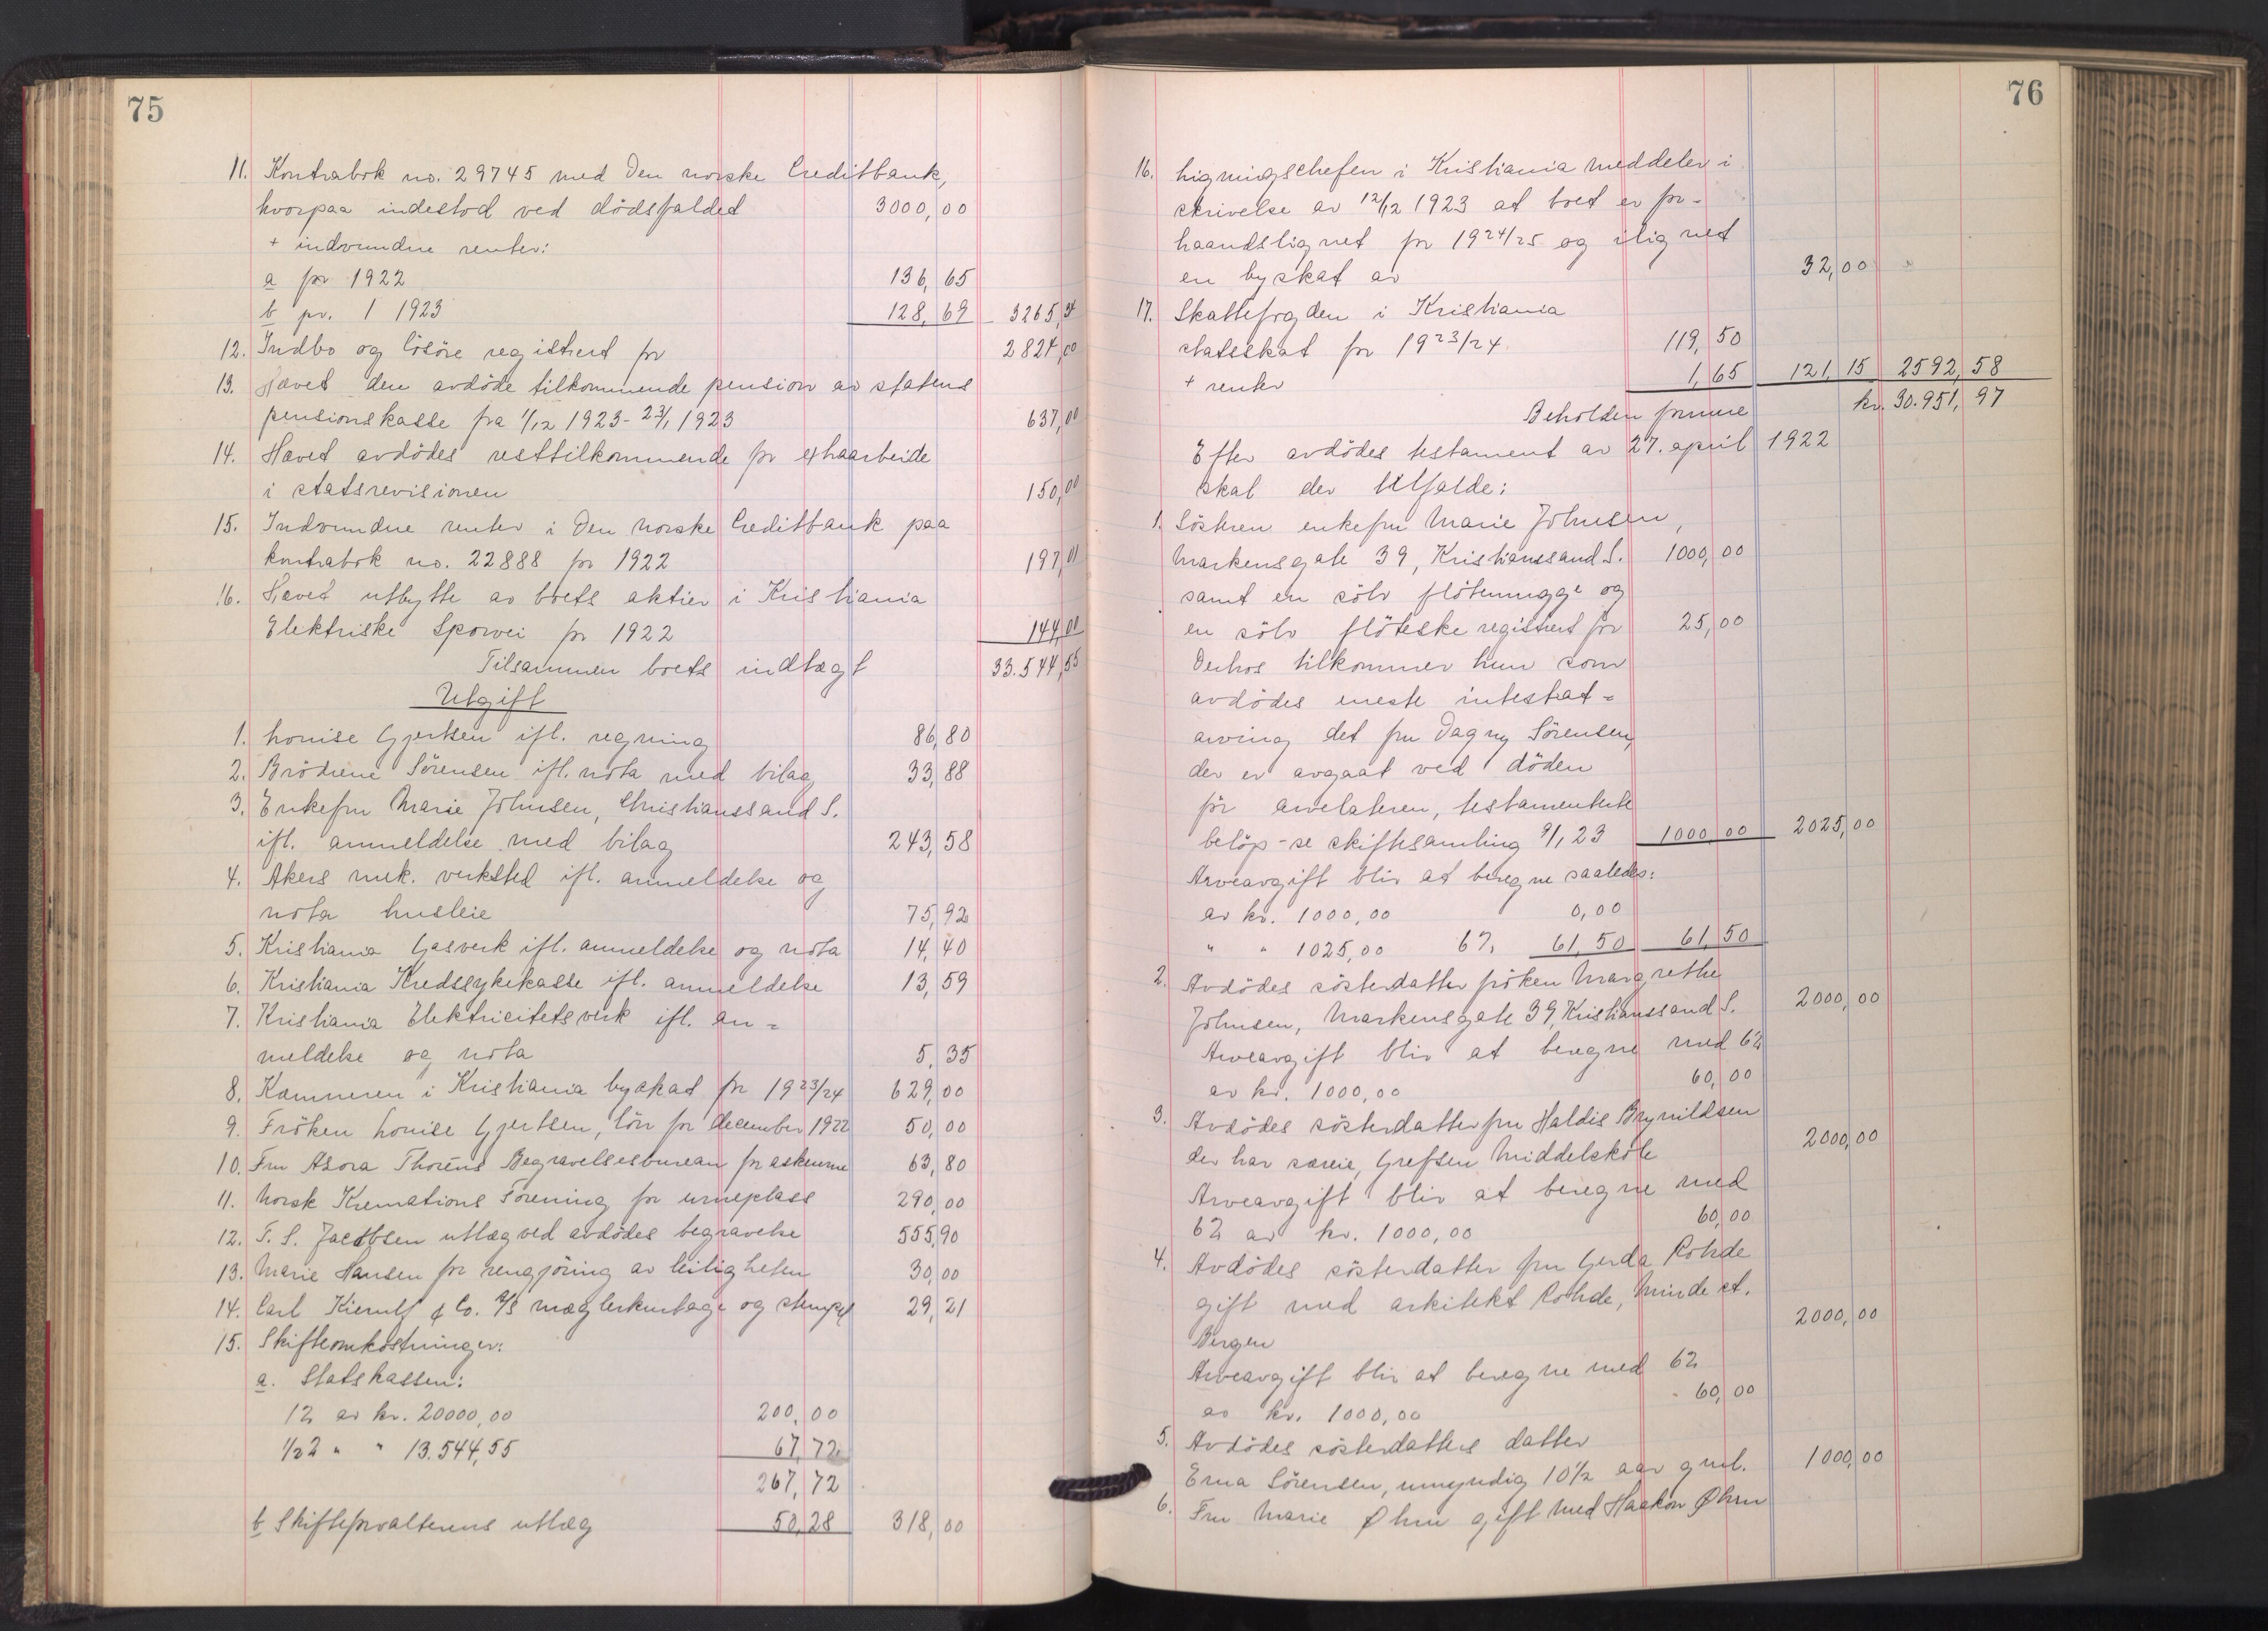 75
11. Kontrabok no. 29745 med Den norske Creditbank,
hvorpaa indestod ved dödsfaldet 3000,00
+ indvundne renter:
a for 1922 136,65
b pr. 1 1923 128,69 3265,34
12. Indbo og lösöre registrert for 2824,00
13. Hævet den avdöde tilkommende pension av statens
pensionskasse fra 1/12 1923 - 23/1 1923 637,00
14. Hævet avdödes resttilkommende for extraarbeide
i statsrevisionen 150,00
15. Indvundne renter i Den norske Creditbank paa
kontrabok no. 22888 for 1922 197,01
16. Hævet utbytte av boets aktier i Kristiania
Elektriske Sporvei for 1922 144,00
Tilsammen boets indtægt 33.544,55
Utgift
1. Louise Gjertsen ifl. regning 86,80
2. Brödrene Sörensen ifl. nota med bilag 33,88
3. Enkefru Marie Johnsen, Christianssand S.
ifl. anmeldelse med bilag 243,58
4. Akers mek. verksted ifl. anmeldelse og
nota husleie 75,92
5. Kristiania Gasverk ifl. anmeldelse og nota 14,40
6. Kristiania Kredssykekasse ifl. anmeldelse 13,59
7. Kristiania Elektricitetsverk ifl. an=
meldelse og nota 5,35
8. Kæmneren i Kristiania byskat for 1923/24 629,00
9. Fröken Louise Gjertsen, lön for december 1922 50,00
10. Fru Asora Thoréns Begravelsesbureau for askeurne 63,80
11. Norsk Kremations Forening for urneplass 290,00
12. F. S. Jacobsen utlæg ved avdödes begravelse 555,90
13. Marie Hansen for rengjöring av leiligheten 30,00
14. Carl Kierulf & Co. A/S mæglerkurtage og stempel 29,21
15. Skifteomkostninger:
a. Statskassen:
1% av kr. 20000,00 200,00
1/2% " " 13.544,55 67,72
267,72
b Skifteforvalterens utlæg 50,28 318,00
76
16. Ligningschefen i Kristiania meddeler i
skrivelse av 12/12 1923 at boet er for-
haandslignet for 1924/25 og ilignet
en byskat av 32,00
17. Skattefogden i Kristiania
statsskat for 1923/24 119,50
+ renter 1,65 121,15 2592,58
Beholden formue kr. 30.951,97
Efter avdödes testament av 27. april 1922
skal der tilfalde:
1. Sösteren enkefru Marie Johnsen,
Markensgate 39, Kristianssand S. 1000,00
samt en sölv flötemugge og
en sölv flöteske registrert for 25,00
Derhos tilkommer hun som
avdödes eneste intestat=
arving det fru Dagny Sörensen,
der er avgaat ved döden
för arvelateren, testamenterte
belöp - se skiftesamling 9/1 23 1000,00 2025,00
Arveavgift blir at beregne saaledes:
av kr. 1000,00 0,00
" " 1025,00 6% 61,50 61,50
2. Avdödes sösterdatter fröken Margrethe
Johnsen, Markensgate 39, Kristianssand S. 2000,00
Arveavgift blir at beregne med 6%
av kr. 1000,00 60,00
3. Avdödes sösterdatter fru Haldis Brynildsen
der har særeie, Grefsen Middelskole 2000,00
Arveavgift blir at beregne med
6% av kr. 1000,00 60,00
4. Avdödes sösterdatter fru Gerda Rohde
gift med arkitekt Rohde, Minde st.
Bergen 2000,00
Arveavgift blir at beregne med 6%
av kr. 1000,00 60,00
5. Avdödes sösterdatters datter
Erna Sörensen, umyndig 10 1/2 aar gml. 1000,00
6. Fru Marie Øhrn gift med Haakon Øhrn